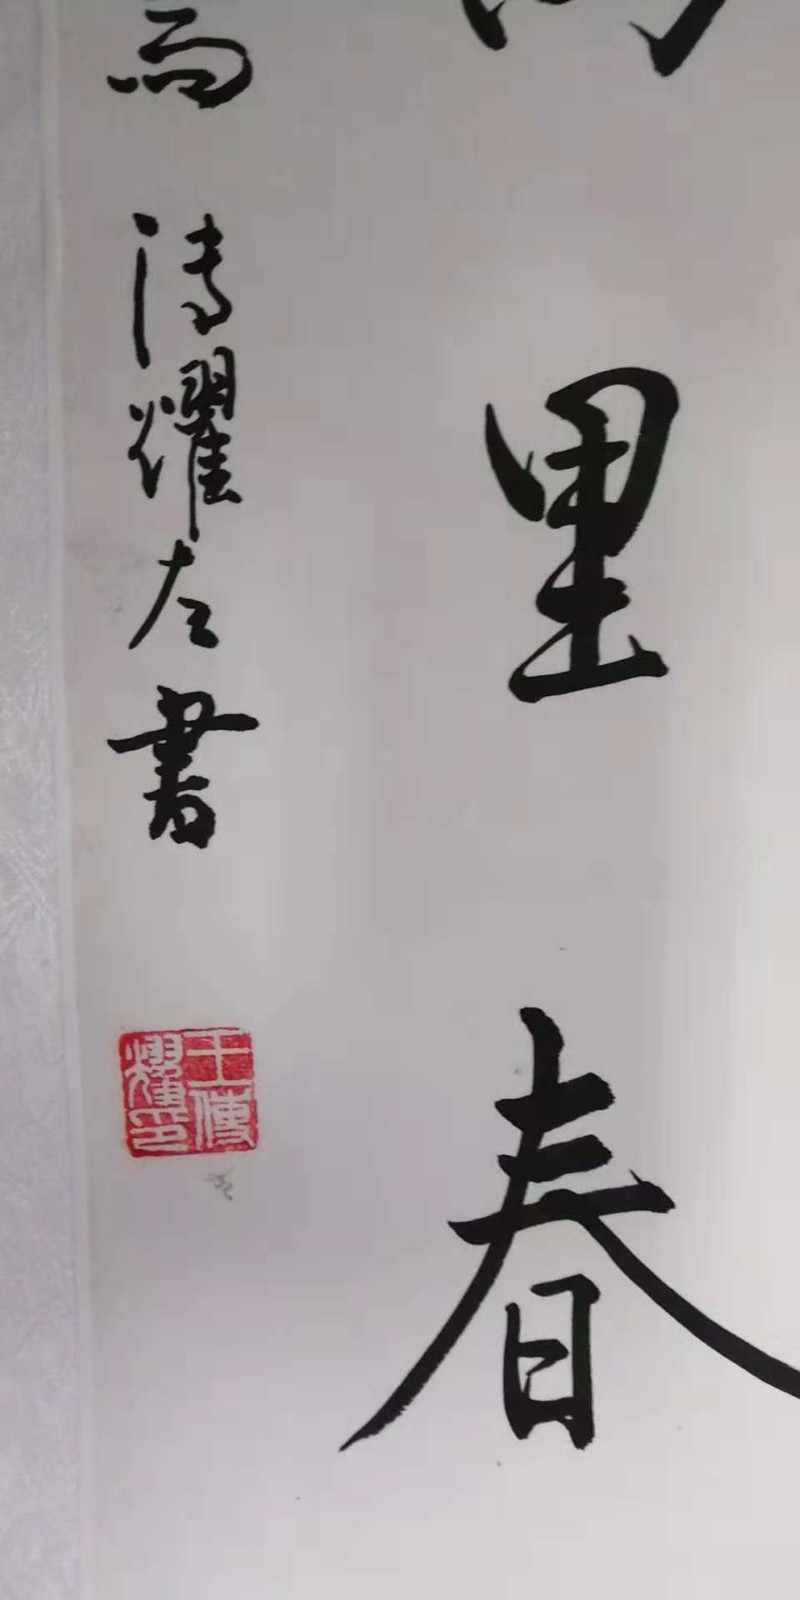 里春
傳耀左書
王傳耀印